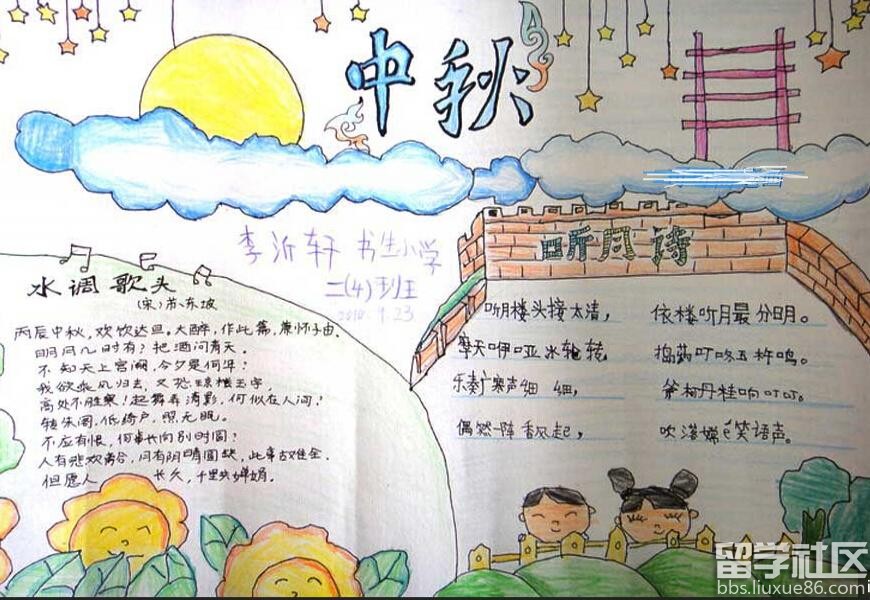 中秋
李沂轩 书生小学
二(4)班
2010.9.23
水调歌头
(宋)苏东坡
丙辰中秋,欢饮达旦。大醉,作此篇,兼怀子由。
明月几时有?把酒问青天。
不知天上宫阙,今夕是何年?
我欲乘风归去,又恐琼楼玉宇,
高处不胜寒!起舞弄清影,何似在人间?
转朱阁,低绮户,照无眠。
不应有恨,何事长向别时圆?
人有悲欢离合,月有阴晴圆缺,此事古难全。
但愿人 长久,千里共婵娟。
听月诗
听月楼头接太清,依楼听月最分明。
摩天咿哑冰轮转,捣药叮咚玉杵鸣。
乐奏广寒声细细,斧柯丹桂响叮叮。
偶然一阵香风起,吹落嫦 笑语声。
留学社区
bbs.liuxue86.com